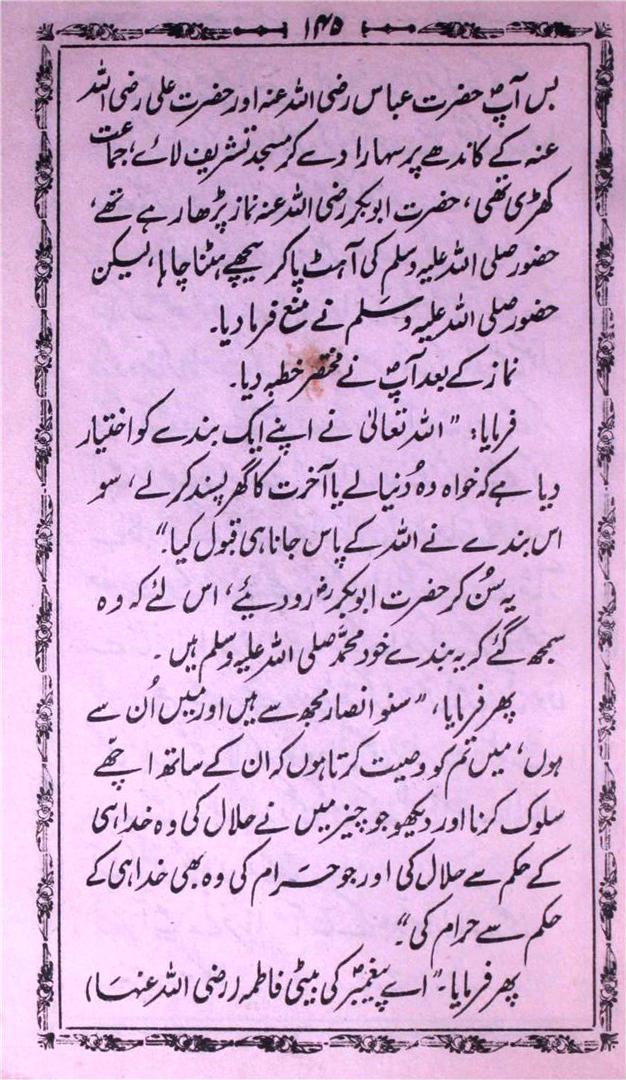 ۱۴۵
بس آپؐ حضرت عباس رضی اللہ عنہ اور حضرت علی رضی اللہ
عنہ کے کاندھے پر سہارا دے کر مسجد تشریف لائے، جماعت
کھڑی تھی، حضرت ابوبکر رضی اللہ عنہ نماز پڑھا رہے تھے،
حضور صلی اللہ علیہ وسلم کی آہٹ پا کر پیچھے ہٹنا چاہا، لیکن
حضور صلی اللہ علیہ وسلم نے منع فرما دیا۔
نماز کے بعد آپؐ نے مختصر خطبہ دیا۔
فرمایا: "اللہ تعالیٰ نے اپنے ایک بندے کو اختیار
دیا ہے کہ خواہ وہ دُنیا لے یا آخرت کا گھر پسند کر لے، سو
اس بندے نے اللہ کے پاس جانا ہی قبول کیا۔"
یہ سُن کر حضرت ابوبکرؓ رو دیئے، اس لئے کہ وہ
سمجھ گئے کہ یہ بندے خود محمدؐ صلی اللہ علیہ وسلم ہیں۔
پھر فرمایا، "سنو انصار مجھ سے ہیں اور میں اُن سے
ہوں، میں تم کو وصیت کرتا ہوں کہ ان کے ساتھ اچھے
سلوک کرنا اور دیکھو جو چیز میں نے حلال کی وہ خدا ہی
کے حکم سے حلال کی اور جو حرام کی وہ بھی خدا ہی کے
حکم سے حرام کی۔"
پھر فرمایا۔ "اے پیغمبرؐ کی بیٹی فاطمہ (رضی اللہ عنہا)